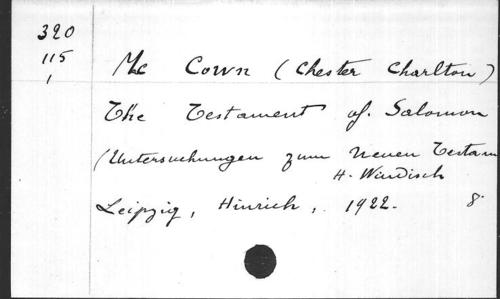 390
115
1
Mc Cown (Chester Charlton)
The Testament of. Salomon
(Untersuchungen zum Neuen Testam
H. Windisch
Leipzig, Hinrich, 1922. 8°